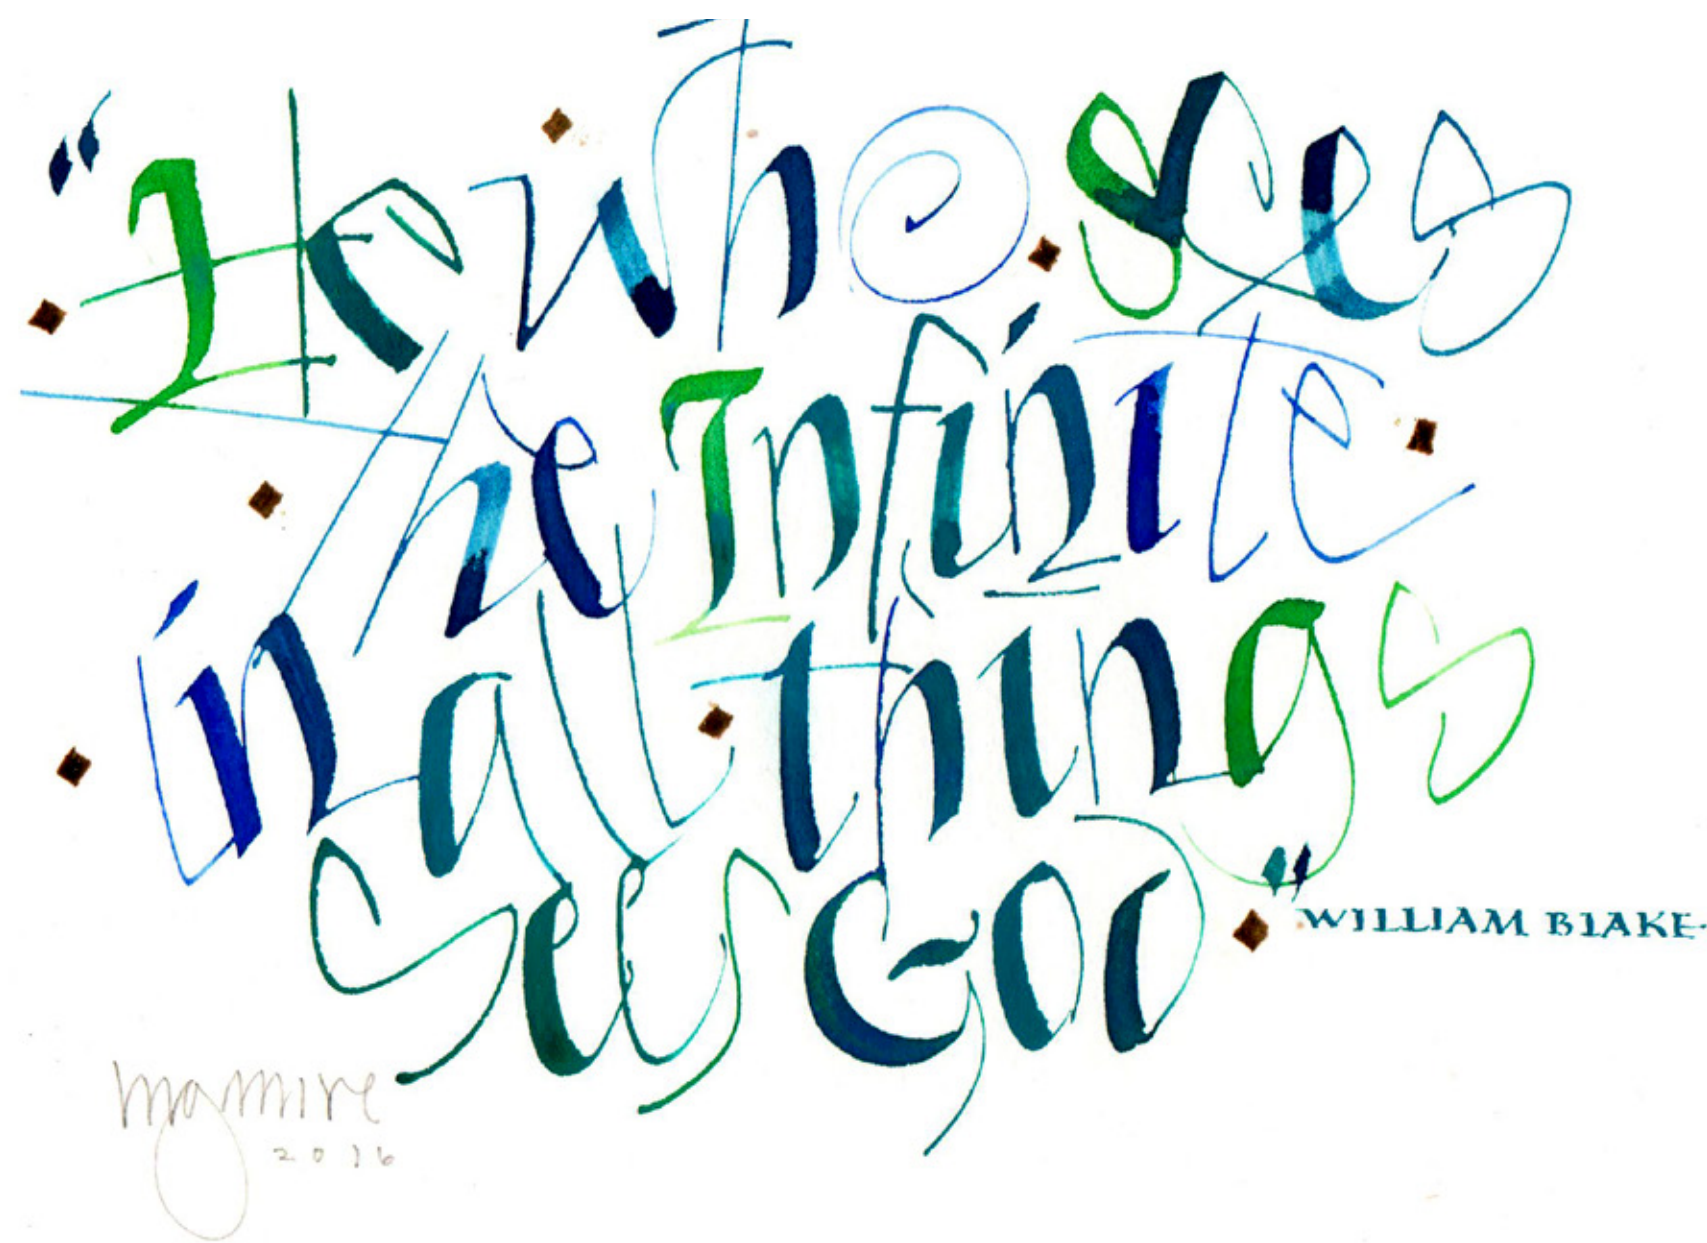 “He who sees
the Infinite
in all things
sees GOD”
WILLIAM BLAKE.
mgmire
2016